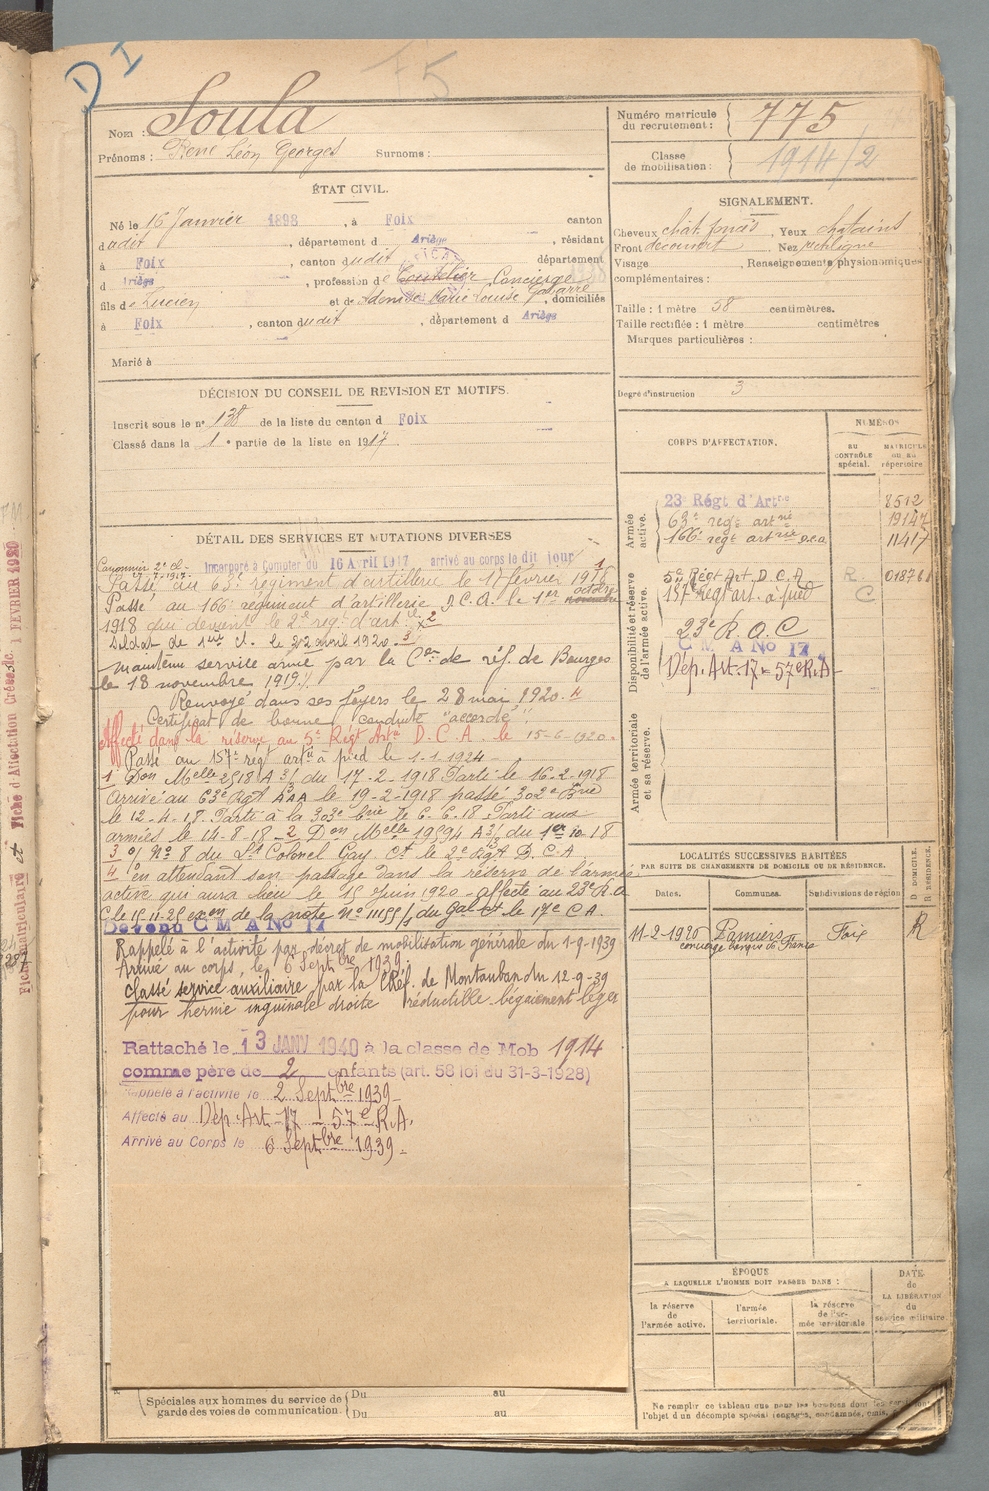 D I
75
Nom : Soula
Prénoms : René Léon Georges Surnoms :
Numéro matricule du recrutement : 775
Classe de mobilisation : 1914/2
ÉTAT CIVIL.
Né le 16 Janvier 1898, à Foix canton
dudit, département d Ariège, résidant
à Foix, canton dudit département
d Ariège, profession de Coutelier Concierge
fils de Lucien et de Adonise Marie Louise Gabarre, domiciliés
à Foix, canton dudit, département d Ariège
Marié à
SIGNALEMENT.
Cheveux chât foncés, Yeux châtains
Front découvert Nez rectiligne
Visage Renseignements physionomiques
complémentaires :
Taille : 1 mètre 58 centimètres.
Taille rectifiée : 1 mètre centimètres
Marques particulières :
Degré d'instruction 3
DÉCISION DU CONSEIL DE REVISION ET MOTIFS.
Inscrit sous le n° 138 de la liste du canton d Foix
Classé dans la 1e partie de la liste en 1917.
DÉTAIL DES SERVICES ET MUTATIONS DIVERSES
Canonnier 2e cl.
Incorporé à compter du 16 Avril 1917 arrivé au corps le dit jour
Passé au 63e régiment d'artillerie le 17 février 1918 1
Passé au 166e régiment d'artillerie D.C.A. le 1er octobre
1918 qui devient le 2e régt d'art. 2
Soldat de 1ere cl. le 22 avril 1920. 3
Maintenu service armé par la Con de réf. de Bourges
le 18 novembre 1919.
Renvoyé dans ses foyers le 28 mai 1920. 4
Certificat de bonne conduite "accordé".
Affecté dans la réserve au 5e Régt Artie D.C.A. le 15-6-1920.
Passé au 157e régt artie à pied le 1-1-1924
1 Don Melle 2518 A 3/3 du 17-2-1918 Parti le 16-2-1918
Arrivé au 63e Rgt AAA le 19-2-1918 passé 302e Bie
le 12-4-18. Parti à la 303e bie le 6-6-18 Parti aux
armées le 14-8-18 - 2 Don Melle 19594 A 3/3 du 1er 10-18
3 O/ No 8 du Lt Colonel Gay Ct le 2e Rgt D.C.A
4 en attendant son passage dans la réserve de l'armée
active qui aura lieu le 15 Juin 1920 - affecté au 23e R.A
C le 15-11-25 en on de la note No 11155/1 du Gal Ct le 17e C.A.
Devenu C M A No 17
Rappelé à l'activité par décret de mobilisation générale du 1-9-1939
Arrivé au corps, le 6 Septbre 1939.
Classé service auxiliaire par la C Réf. de Montauban du 12-9-39
pour hernie inguinale droite réductible bégaiement léger
Rattaché le 13 JANV 1940 à la classe de Mob 1914
comme père de 2 enfants (art. 58 loi du 31-3-1928)
Rappelé à l'activité le 2 Septbre 1939
Affecté au Dép. Art. 17 - 57e R.A.
Arrivé au Corps le 6 Septbre 1939.
Spéciales aux hommes du service de garde des voies de communication
Du au
Du au
CORPS D'AFFECTATION.
NUMÉROS
AU CONTRÔLE spécial.
MATRICULE OU AU répertoire
Armée active.
23e Régt d'Artie 8512
63e régt artie 19147
166e régt artie D.C.A 11417
Disponibilité et réserve de l'armée active.
5e Régt Art. D.C.A R.
157e régt art. à pied C
23e R.A.C
C M A No 17
Dép. Art. 17 - 57e R.A
Armée territoriale et sa réserve.
LOCALITÉS SUCCESSIVES HABITÉES
PAR SUITE DE CHANGEMENTS DE DOMICILE OU DE RÉSIDENCE.
Dates. Communes. Subdivisions de région D DOMICILE. R RÉSIDENCE.
11-2-1920 Pamiers Foix R
concierge banque de France
ÉPOQUE
A LAQUELLE L'HOMME DOIT PASSER DANS :
la réserve de l'armée active.
l'armée territoriale.
la réserve de l'armée territoriale
DATE de LA LIBÉRATION du service militaire.
Ne remplir ce tableau que pour les hommes dont
l'objet d'un décompte spécial (engagés, condamnés, omis,
1 FEVRIER 1920
Fiche matriculaire et Fiche d'Affectation Créés le